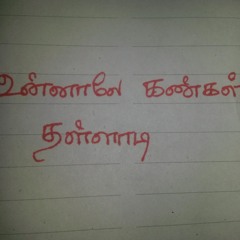 உன்னாலே கண்கள்
தள்ளாடி